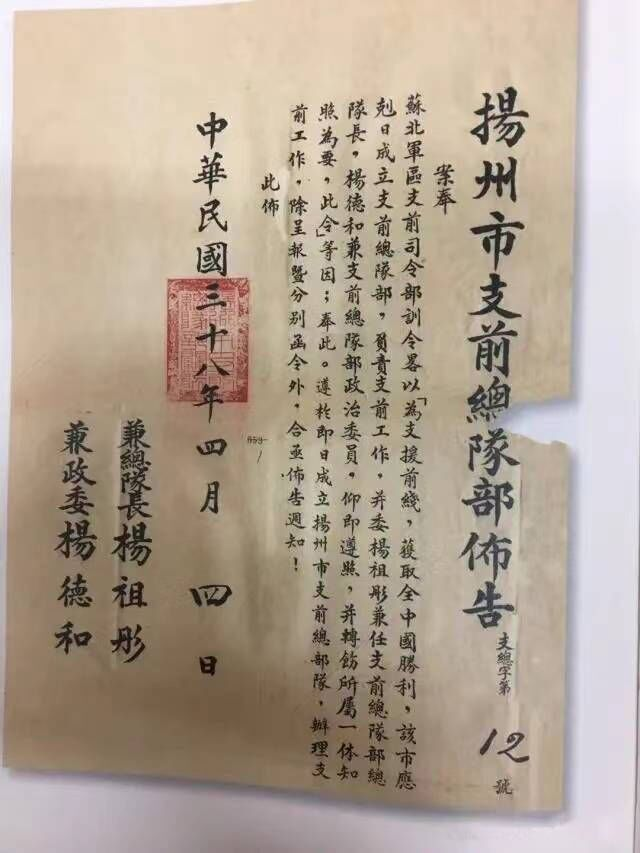 揚州市支前總隊部佈告
支總字第
12
號
案奉
蘇北軍區支前司令部訓令畧以「為支援前綫，獲取全中國勝利，該市應
剋日成立支前總隊部，負責支前工作，并委楊祖彤兼任支前總隊部總
隊長，楊德和兼支前總隊部政治委員，仰即遵照，并轉飭所屬一体知
照為要，此令」等因；奉此。遵於即日成立揚州市支前總部隊，辦理支
前工作，除呈報暨分别函令外，合亟佈告週知！
此佈
中華民國三十八年四月 四日
兼總隊長楊祖彤
兼政委楊德和